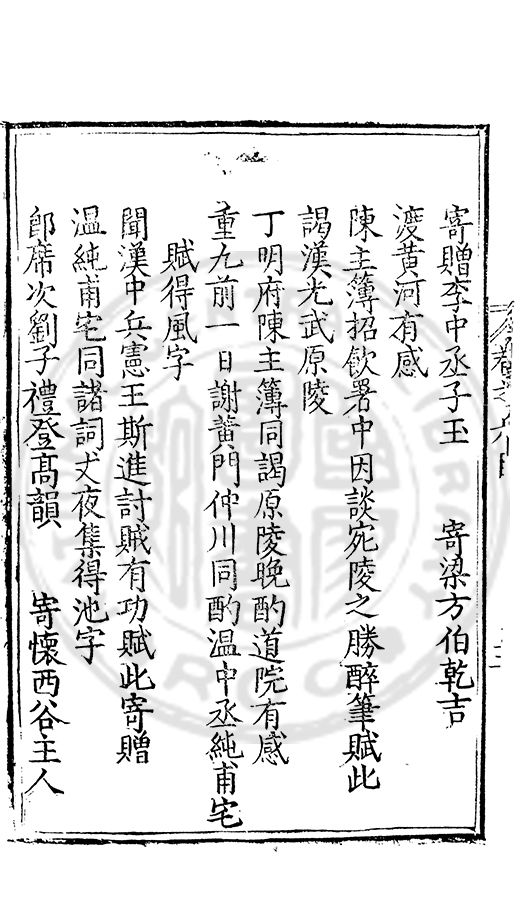 寄贈李中丞子玉　寄梁方伯乾吉
渡黃河有感
陳主簿招飲署中因談宛陵之勝醉筆賦此
謁漢光武原陵
丁明府陳主簿同謁原陵晚酌道院有感
重九前一日謝黃門仲川同酌溫中丞純甫宅
賦得風字
聞漢中兵憲王斯進討賊有功賦此寄贈
溫純甫宅同諸詞丈夜集得池字
卽席次劉子禮登高韻　寄懷西谷主人